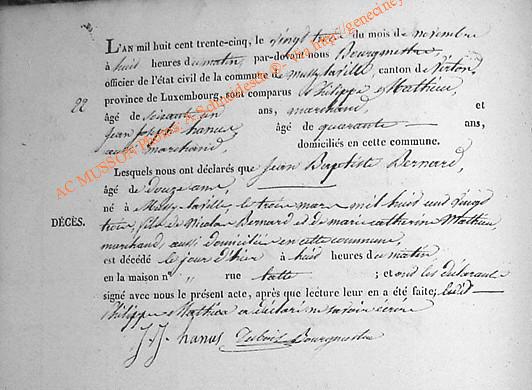 L'AN mil huit cent trente-cinq, le vingt trois du mois de novembre
à huit heures du matin, par-devant nous Bourgmestre
officier de l'état civil de la commune de mussy laville, canton de Virton,
22
province de Luxembourg, sont comparus Philippe Mathieu,
âgé de soixante un ans, marchand et
jean joseph hanus âgé de quarante ans,
aussi marchand, domiciliés en cette commune.
Lesquels nous ont déclarés que Jean Baptiste Bernard,
âgé de douze ans,
DÉCÈS.
né à Mussy laville le trois mars mil huit cent vingt
trois, fils de Nicolas Bernard et de marie catherine Mathieu
marchand, aussi domiciliés en cette commune,
est décédé le jour d'hier à huit heures du matin
en la maison n° " rue ; et ont les déclarants
signé avec nous le présent acte, après que lecture leur en a été faite; ledit
Philippe Mathieu a déclaré ne savoir écrire
J. J. hanus Dubois Bourgmestre
AC MUSSON Photos A Schneider © - via http://geneciney